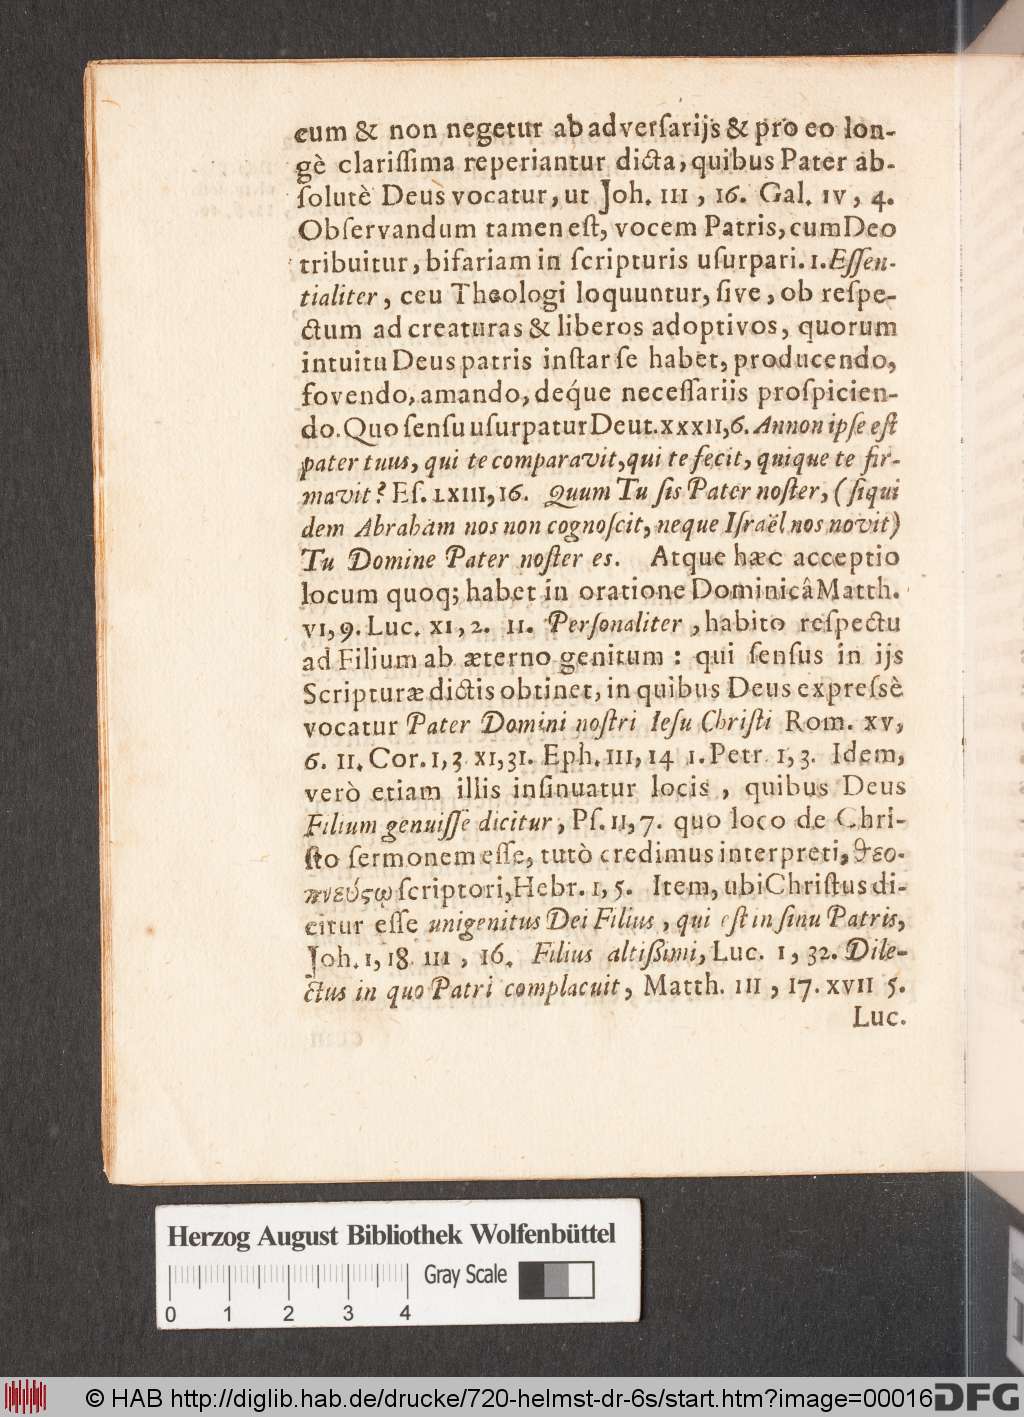 cum & non negetur ab adverſarijs & pro eo lon-
gè clariſſima reperiantur dicta, quibus Pater ab-
ſolutè Deus vocatur, ut Joh. III, 16. Gal. IV, 4.
Obſervandum tamen eſt, vocem Patris, cum Deo
tribuitur, bifariam in ſcripturis uſurpari. 1. Eſſen-
tialiter, ceu Theologi loquuntur, ſive, ob reſpe-
ctum ad creaturas & liberos adoptivos, quorum
intuitu Deus patris inſtar ſe habet, producendo,
fovendo, amando, déque neceſſariis proſpicien-
do. Quo ſenſu uſurpatur Deut. XXXII, 6. Annon ipſe eſt
pater tuus, qui te comparavit, qui te fecit, quique te fir-
mavit? Eſ. LXIII, 16. Quum Tu ſis Pater noſter, (ſiqui
dem Abraham nos non cognoſcit, neque Iſraël nos novit)
Tu Domine Pater noſter es. Atque hæc acceptio
locum quoq; habet in oratione Dominicâ Matth.
VI, 9. Luc. XI, 2. II. Perſonaliter, habito reſpectu
ad Filium ab æterno genitum : qui ſenſus in ijs
Scripturæ dictis obtinet, in quibus Deus expreſsè
vocatur Pater Domini noſtri Ieſu Chriſti Rom. XV,
6. II. Cor. I, 3 XI, 31. Eph. III, 14 1. Petr. I, 3. Idem,
verò etiam illis inſinuatur locis, quibus Deus
Filium genuiſſe dicitur, Pſ. II, 7. quo loco de Chri-
ſto ſermonem eſſe, tutò credimus interpreti, θεο-
πνεύςῳ ſcriptori, Hebr. I, 5. Item, ubi Chriſtus di-
citur eſſe unigenitus Dei Filius, qui eſt in ſinu Patris,
Joh. I, 18 III, 16. Filius altißimi, Luc. I, 32. Dile-
ctus in quo Patri complacuit, Matth. III, 17. XVII 5.
Luc.
Herzog August Bibliothek Wolfenbüttel
Gray Scale
0 1 2 3 4
© HAB http://diglib.hab.de/drucke/720-helmst-dr-6s/start.htm?image=00016
DFG